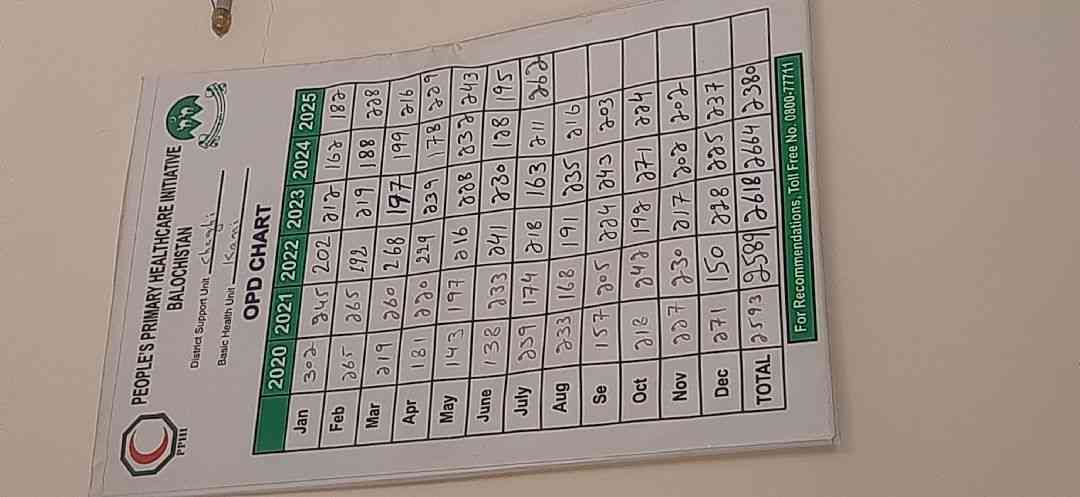 PPHI
PEOPLE'S PRIMARY HEALTHCARE INITIATIVE
BALOCHISTAN
District Support Unit Chaghi
Basic Health Unit
OPD CHART
2020 2021 2022 2023 2024 2025
Jan 302 245 202 212 162 182
Feb 265 265 192 219 188 228
Mar 219 260 268 197 199 216
Apr 181 220 229 239 178 229
May 143 197 216 228 232 243
June 138 233 241 230 128 195
July 239 174 218 163 211 262
Aug 233 168 191 235 216
Se 157 205 224 243 203
Oct 218 242 192 271 224
Nov 227 230 217 202 202
Dec 271 150 228 225 237
TOTAL 2593 2589 2618 2664 2380
For Recommendations, Toll Free No. 0800-77711